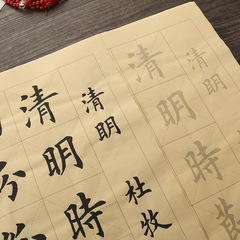 清明
清明時
清明
杜牧
清明時